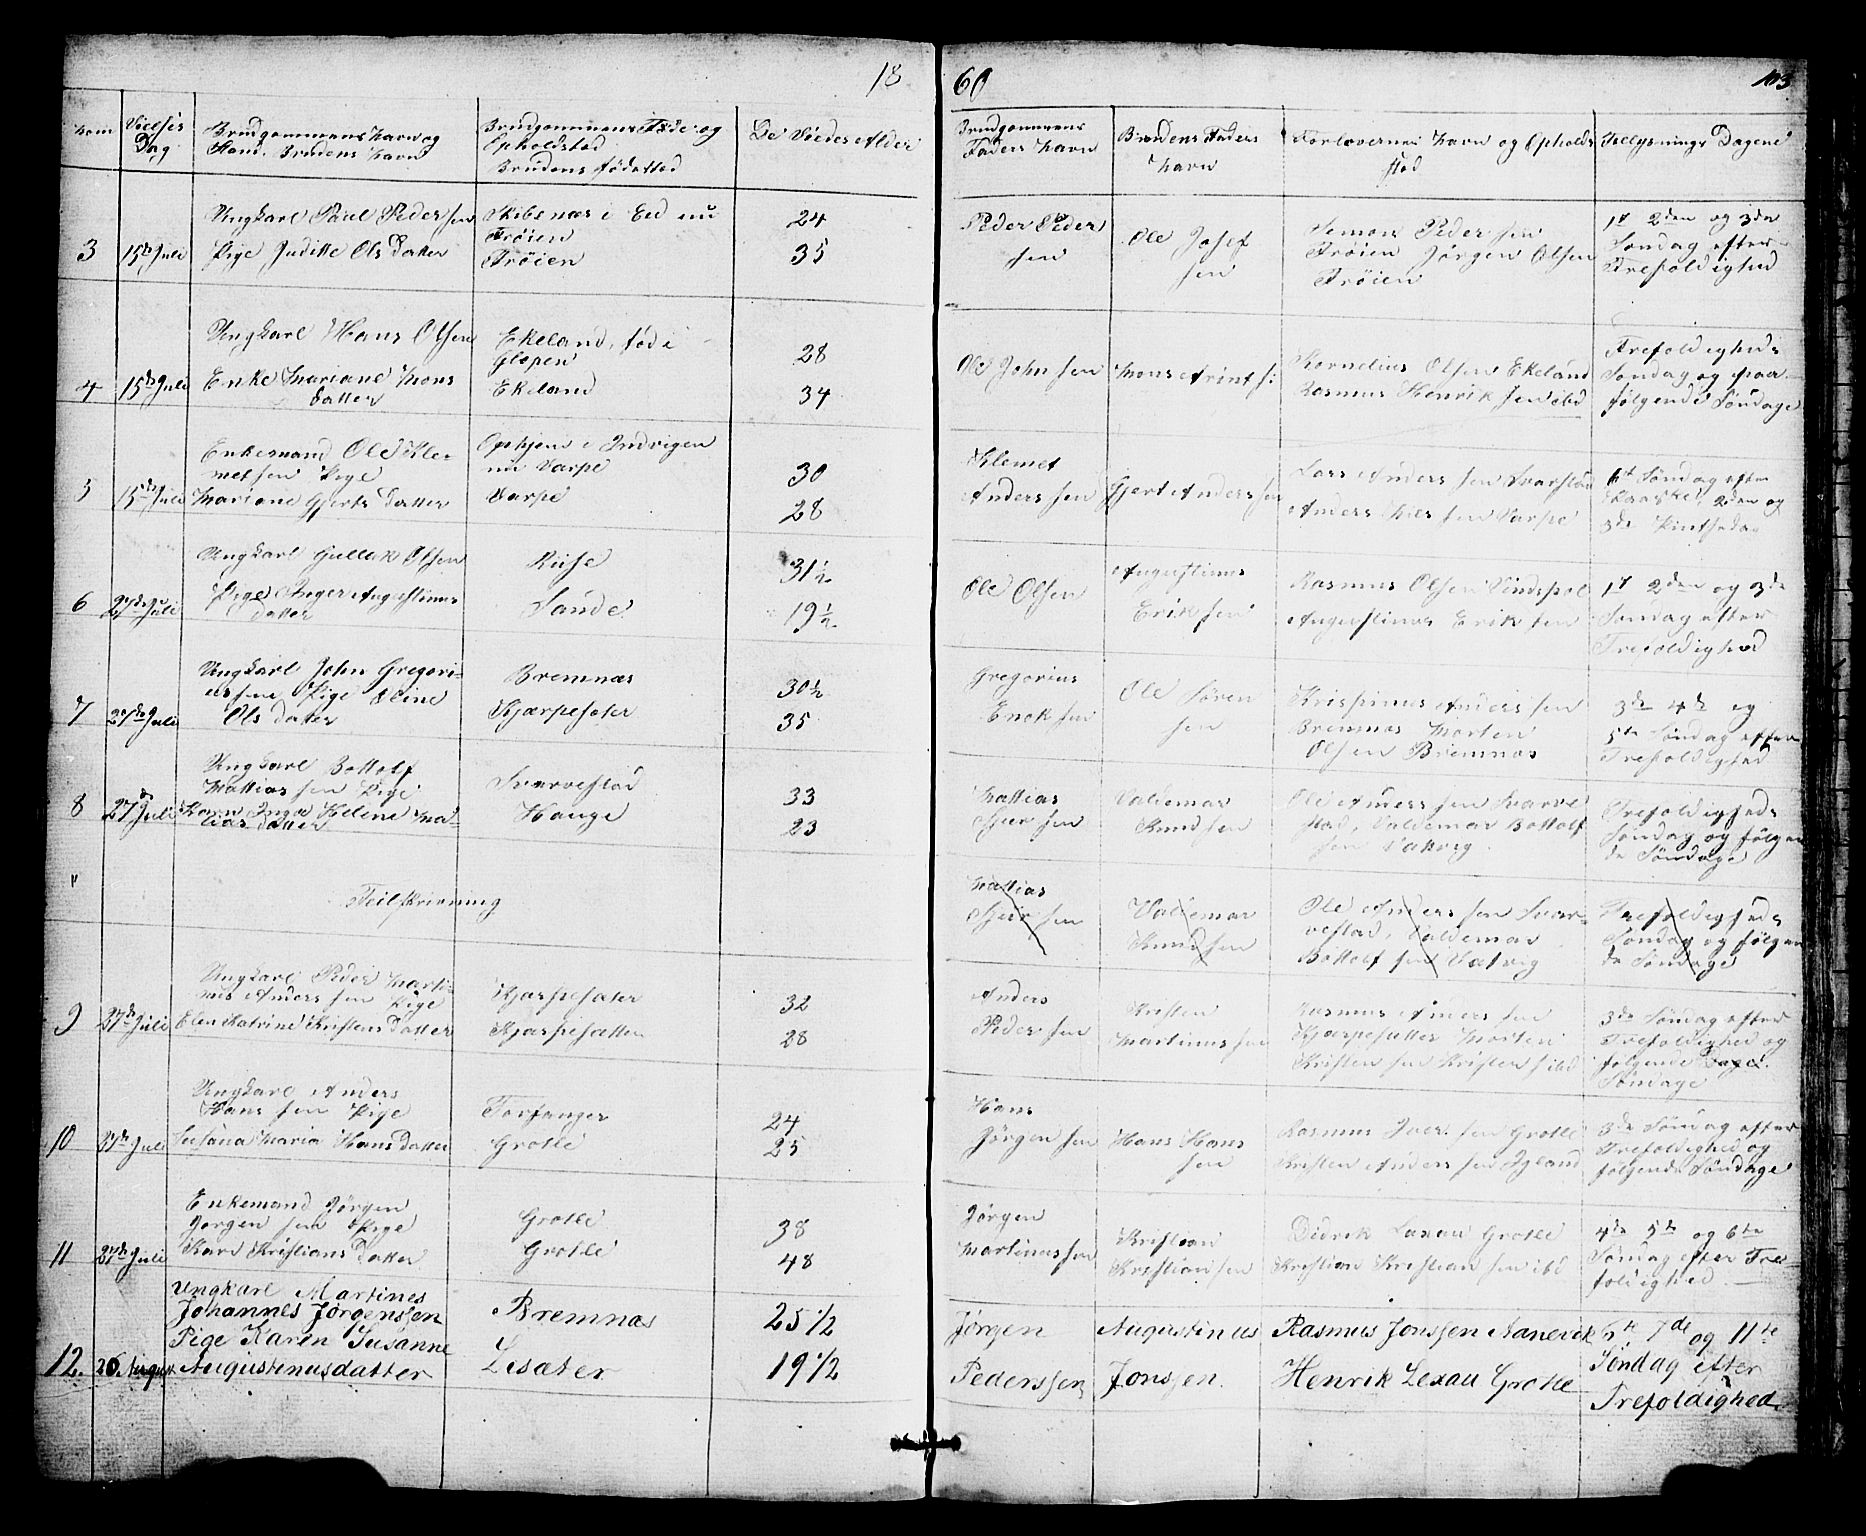 18 60 103
Vielses Dag
Brudgommens Navn og Stand. Brudens Navn
Brudgommens Føde og Opholdsted Brudens fødested
De Viedes Alder
Brudgommens Faders Navn
Brudens Faders Navn
Forlovernes Navn og Opholdssted
Tillysnings Dagene
3 15de Juli
Ungkarl Paul Pedersen
Pige Juditte Olsdatter
Skibsnæs i Eid nu
Trøien
Trøien
24
35
Peder Peder
sen
Ole Josef
sen
Semon Pedersen
Trøien Jørgen Olsen
Trøien
1st 2den og 3de
Søndag efter
Trefoldighed
4 15de Juli
Ungkarl Hans Olsen
Enke Mariane Mons
datter
Ekeland, fød i
Glopen
Ekeland
28
34
Ole Johnsen
Mons Arints:
Kornelius Olsen Ekeland
Rasmus Henriksen ibd
Trefoldigheds
Søndag og paa
følgende Søndage
5 15de Juli
Enkemand Ole Kle-
metsen Pige
Mariane Gjertsdatter
Ophjem i Indvigen
nu Varpe
Varpe
30
28
Klemet
Anderssen
Gjert Anderssen
Lars Anderssen
Anders Nilssen Varpe
6te Søndag efter
Paaske, 2den og
3de Pintsedag
6 27de Juli
Ungkarl Gullak Olsen
Pige Inger Augustinus
datter
Riise
Sande
31 1/2
19 1/2
Ole Olsen
Augustinus
Eriksen
Rasmus Olsen Vindspol
Augustinus Eriksen
1st 2den og 3de
Søndag efter
Trefoldighed
7 27de Juli
Ungkarl John Gregori-
ussen Pige Eline
Olsdatter
Bremnæs
Kjærpesæter
30 1/2
35
Gregorius
Enoksen
Ole Søren
sen
Krispinus Anderssen
Bremnæs Morten
Olsen Bremnæs
3de 4de og
5te Søndag efter
Trefoldighed
8 27de Juli
Ungkarl Bottolf
Mattiassen Pige
Karn Inga Helene
datter
Svarvestad
Hauge
33
23
Mattias
Valdemar
Knudsen
Ole Anderssen Svarve
stad, Valdemar Bottolf
sen Vatvig
Trefoldigheds
Søndag og følgen
de Søndage
"
Feilskrivning
Mattias
Valdemar
Knudsen
Ole Anderssen Svar-
vestad, Valdemar
Bottolfsen Vatvig
Trefoldigheds
Søndag og følgen
de Søndage
9 27de Juli
Ungkarl Peder Marti-
nus Anderssen Pige
Elen Katrine Kristensdatter
Kjærpesæter
Kjærpesætter
32
28
Anders
Pedersen
Kristen
Martinussen
Rasmus Anderssen
Kjærpesætter Morten
Kristensen Kristensibd
3de Søndag efter
Trefoldighed og
følgende Dage.
Søndage
10 27de Juli
Ungkarl Anders
Hanssen Pige
Susana Maria Hansdatter
Torfanger
Grotle
24
25
Hans
Jørgensen
Hans Hans
sen
Rasmus Iversen Grotle
Kristen Anderssen Igland
3de Søndag efter
Trefoldighed og
følgende Søndage
11 27de Juli
Enkemand Jørgen
Jørgensen Pige
Kari Kristiansdatter
Grotle
Grotle
38
48
Jørgen
Martinussen
Kristian
Kristiansen
Didrik Laxau Grotle
Kristian Kristiansen ibd
4de 5te og 6te
Søndag efter Tre-
foldighed
12. 26 August
Ungkarl Martines
Johannes Jørgenssen
Pige Karen Susanne
Augustinusdatter
Bremnæs
Lisæter
25 1/2
19 1/2
Jørgen
Pederssen
Augustinus
Jonssen.
Rasmus Jonssen Aanevik
Henrik Lexau Grotle
6te 7de og 11te
Søndag efter
Trefoldighed